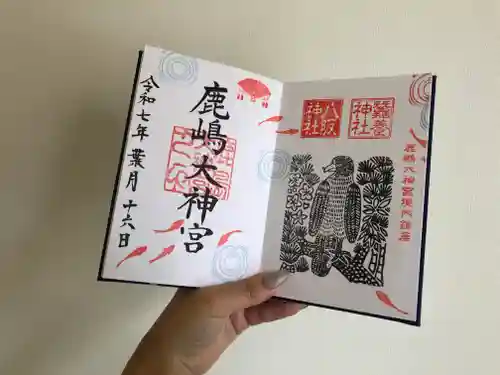 鹿嶋大神宮
令和七年 葉月 十六日
八坂
神社
神社
鹿嶋大神宮境内鎮座